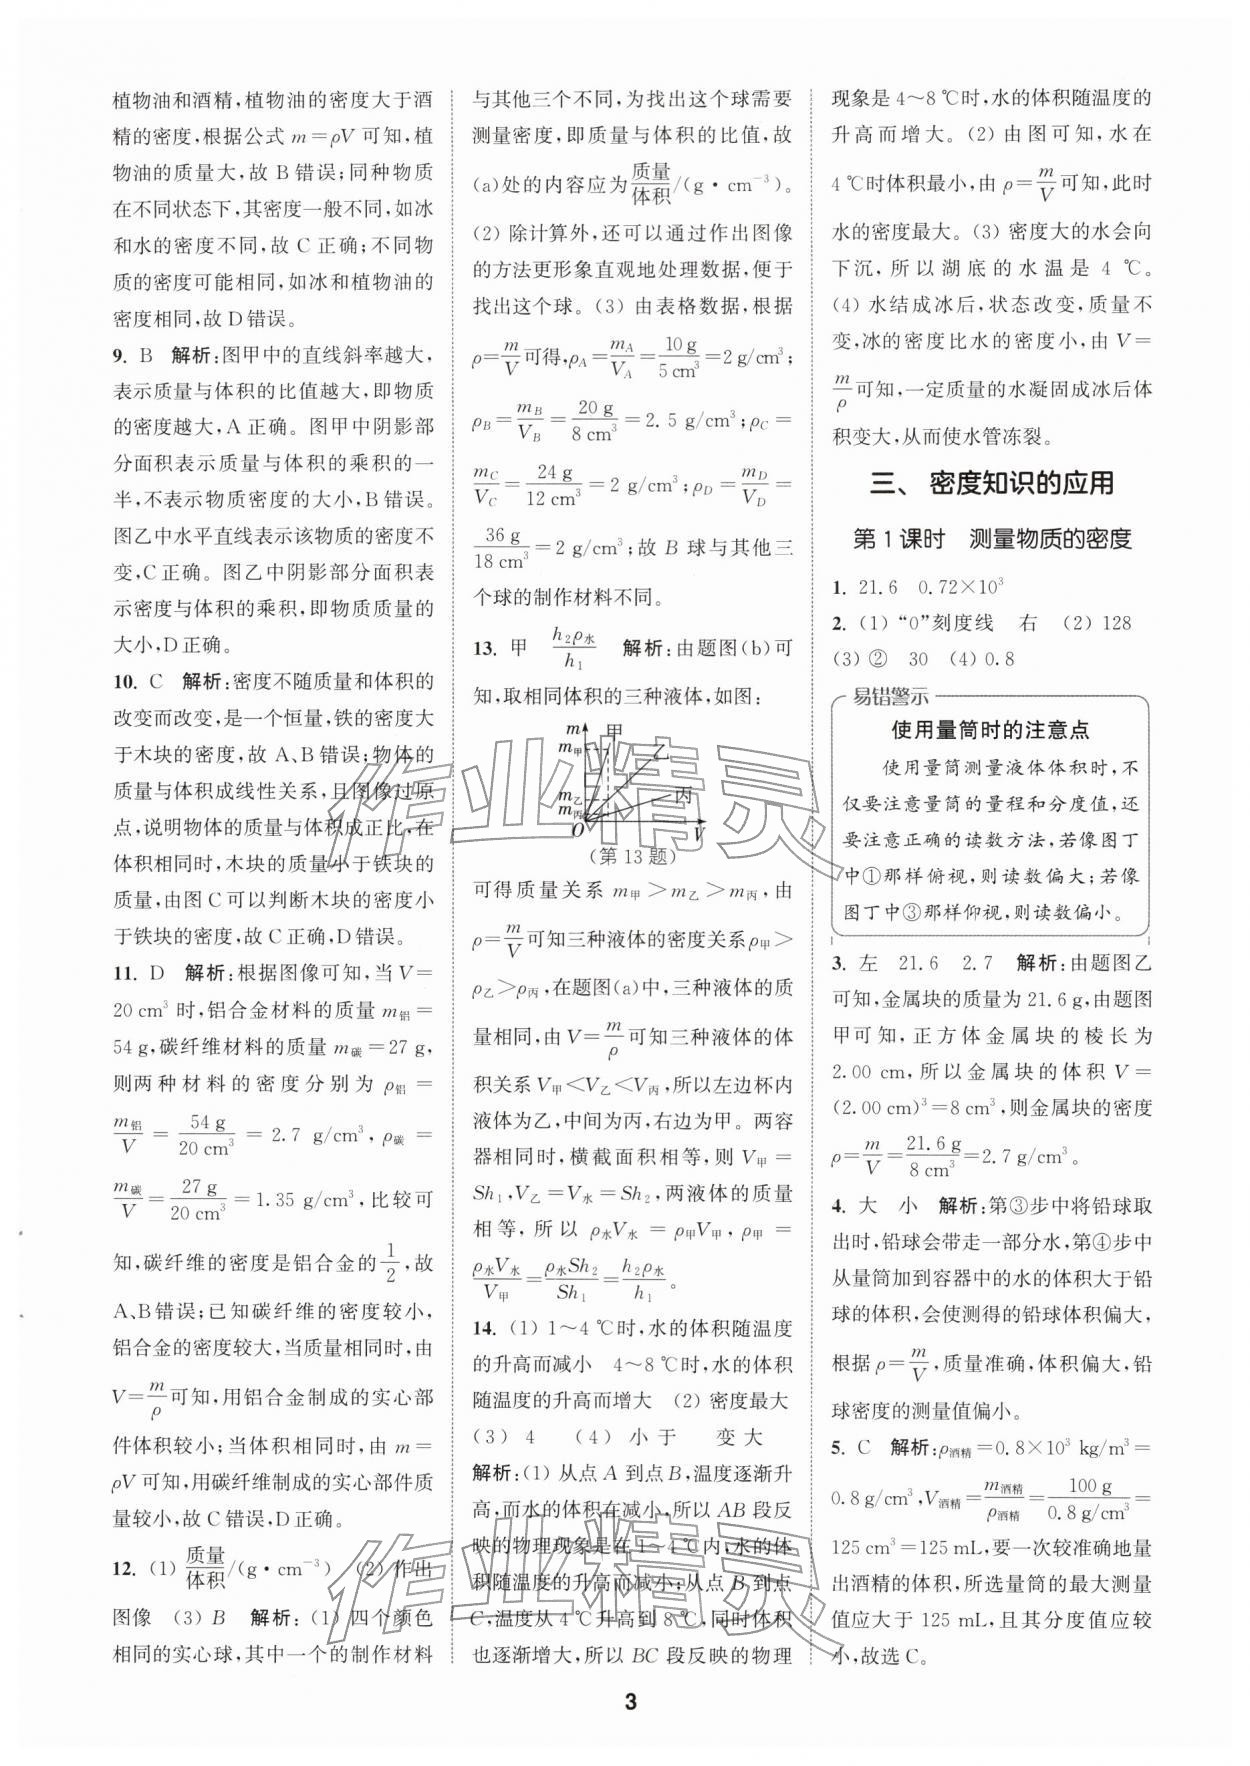 植物油和酒精,植物油的密度大于酒
精的密度,根据公式 m=ρV 可知,植
物油的质量大,故 B 错误;同种物质
在不同状态下,其密度一般不同,如冰
和水的密度不同,故 C 正确;不同物
质的密度可能相同,如冰和植物油的
密度相同,故 D 错误。
9. B 解析:图甲中的直线斜率越大,
表示质量与体积的比值越大,即物质
的密度越大,A 正确。图甲中阴影部
分面积表示质量与体积的乘积的一
半,不表示物质密度的大小,B 错误。
图乙中水平直线表示该物质的密度不
变,C 正确。图乙中阴影部分面积表
示密度与体积的乘积,即物质质量的
大小,D 正确。
10. C 解析:密度不随质量和体积的
改变而改变,是一个恒量,铁的密度大
于木块的密度,故 A、B 错误;物体的
质量与体积成线性关系,且图像过原
点,说明物体的质量与体积成正比,在
体积相同时,木块的质量小于铁块的
质量,由图 C 可以判断木块的密度小
于铁块的密度,故 C 正确,D 错误。
11. D 解析:根据图像可知,当 V=
20 cm³ 时,铝合金材料的质量 m铝=
54 g,碳纤维材料的质量 m碳=27 g,
则两种材料的密度分别为 ρ铝 =
m铝/V = 54 g/20 cm³ = 2.7 g/cm³, ρ碳 =
m碳/V = 27 g/20 cm³ = 1.35 g/cm³,比较可
知,碳纤维的密度是铝合金的 1/2,故
A、B 错误;已知碳纤维的密度较小,
铝合金的密度较大,当质量相同时,由
V=m/ρ 可知,用铝合金制成的实心部
件体积较小;当体积相同时,由 m=
ρV 可知,用碳纤维制成的实心部件质
量较小,故 C 错误,D 正确。
12. (1) 质量/体积/(g·cm⁻³) (2) 作出
图像 (3) B 解析:(1) 四个颜色
相同的实心球,其中一个的制作材料
与其他三个不同,为找出这个球需要
测量密度,即质量与体积的比值,故
(a)处的内容应为 质量/体积/(g·cm⁻³)。
(2) 除计算外,还可以通过作出图像
的方法更形象直观地处理数据,便于
找出这个球。(3) 由表格数据,根据
ρ=m/V 可得,ρA=mA/VA=10 g/5 cm³=2 g/cm³;
ρB=mB/VB=20 g/8 cm³=2.5 g/cm³;ρC=
mC/VC=24 g/12 cm³=2 g/cm³;ρD=mD/VD=
36 g/18 cm³=2 g/cm³;故 B 球与其他三
个球的制作材料不同。
13. 甲 h₂ρ水/h₁ 解析:由题图(b)可
知,取相同体积的三种液体,如图:
m 甲
m甲
乙
m乙 丙
m丙
O V
(第 13 题)
可得质量关系 m甲>m乙>m丙,由
ρ=m/V 可知三种液体的密度关系 ρ甲>
ρ乙>ρ丙,在题图(a)中,三种液体的质
量相同,由 V=m/ρ 可知三种液体的体
积关系 V甲<V乙<V丙,所以左边杯内
液体为乙,中间为丙,右边为甲。两容
器相同时,横截面积相等,则 V甲=
Sh₁,V乙=V水=Sh₂,两液体的质量
相等,所以 ρ水V水=ρ甲V甲,ρ甲=
ρ水V水/V甲=ρ水Sh₂/Sh₁=h₂ρ水/h₁。
14. (1) 1～4 ℃时,水的体积随温度
的升高而减小 4～8 ℃时,水的体积
随温度的升高而增大 (2) 密度最大
(3) 4 (4) 小于 变大
解析:(1) 从点 A 到点 B,温度逐渐升
高,而水的体积在减小,所以 AB 段反
映的物理现象是在 1～4 ℃内,水的体
积随温度的升高而减小;从点 B 到点
C,温度从 4 ℃升高到 8 ℃,同时体积
也逐渐增大,所以 BC 段反映的物理
现象是 4～8 ℃时,水的体积随温度的
升高而增大。(2) 由图可知,水在
4 ℃时体积最小,由 ρ=m/V 可知,此时
水的密度最大。(3) 密度大的水会向
下沉,所以湖底的水温是 4 ℃。
(4) 水结成冰后,状态改变,质量不
变,冰的密度比水的密度小,由 V=
m/ρ 可知,一定质量的水凝固成冰后体
积变大,从而使水管冻裂。
三、 密度知识的应用
第 1 课时 测量物质的密度
1. 21.6 0.72×10³
2. (1) “0”刻度线 右 (2) 128
(3) ② 30 (4) 0.8
易错警示
使用量筒时的注意点
使用量筒测量液体体积时,不
仅要注意量筒的量程和分度值,还
要注意正确的读数方法,若像图丁
中①那样俯视,则读数偏大;若像
图丁中③那样仰视,则读数偏小。
3. 左 21.6 2.7 解析:由题图乙
可知,金属块的质量为 21.6 g,由题图
甲可知,正方体金属块的棱长为
2.00 cm,所以金属块的体积 V=
(2.00 cm)³=8 cm³,则金属块的密度
ρ=m/V=21.6 g/8 cm³=2.7 g/cm³。
4. 大 小 解析:第③步中将铅球取
出时,铅球会带走一部分水,第④步中
从量筒加到容器中的水的体积大于铅
球的体积,会使测得的铅球体积偏大,
根据 ρ=m/V,质量准确,体积偏大,铅
球密度的测量值偏小。
5. C 解析:ρ酒精=0.8×10³ kg/m³=
0.8 g/cm³,V酒精=m酒精/ρ酒精=100 g/0.8 g/cm³=
125 cm³=125 mL,要一次较准确地量
出酒精的体积,所选量筒的最大测量
值应大于 125 mL,且其分度值应较
小,故选 C。
作业精灵
作业精灵
3